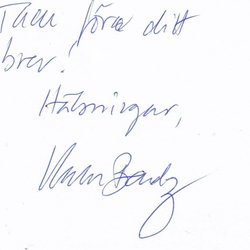 Tack för ditt
brev!
Hälsningar,